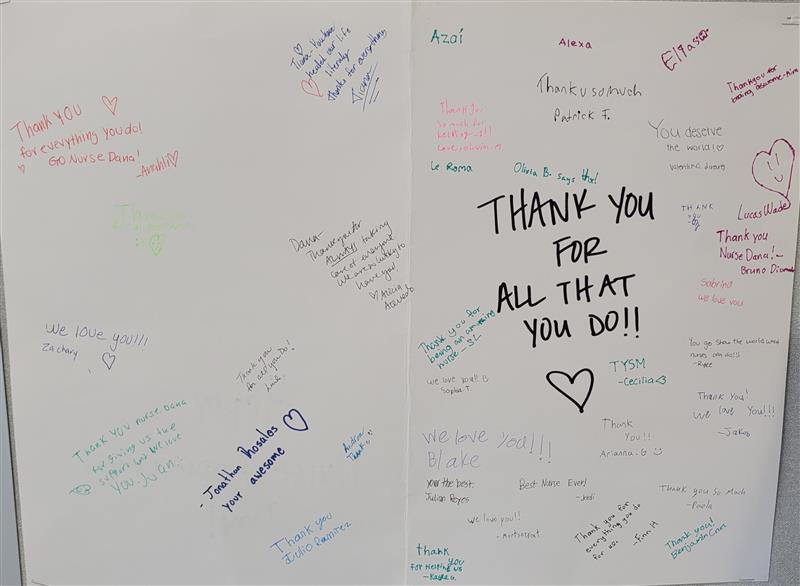 Thank You
for everything you do!
GO Nurse Dana!
-Anahli
Thank you
:)
We love you!!!
Zachary
Thank You nurse Dana
for giving us the
support and we love
you. Juan:
- Jonathan Rosales
your awesome
Thank you
Julio Ramirez
Thank you
for all you Do!
Audrina
Thanks
Dana-
Thank you for
ALWAYS taking
care of everyone
We are so lucky to
have you!
Alicia
Acevedo
healed our life
literaly
thanks for everything
Azaí
Alexa
Elias
Thank u so much
Patrick F.
Thank you for
being awesome-
Thank You
so much for
helping us!!
Love,
You deserve
the world!
Valentina
Le Roma
Olivia B. says thx!
THANK YOU
FOR
ALL THAT
YOU DO!!
THANK
you
Lucas Wade
Thank you
Nurse Dana! -
Bruno
Sabrina
we love you
Thank you for
being an amazing
nurse - SL
You go show the world what
nurses can do!!
-Ryee
we love you!!
Sophia T.
TYSM
-Cecilia<3
Thank You!
We love You!!!
-Jakob
We love You!!!
Blake
Thank
You!!
Arianna. G
your the best.
Julian Reyes
Best Nurse Ever!
-Jordi
Thank you so Much
-Paola
We love you!!
-Montserrat
Thank you for
everything you do
for us.
-Finn H
Thank you!
Benjamin
thank
you
FOR HelPing US
-Kayla G.